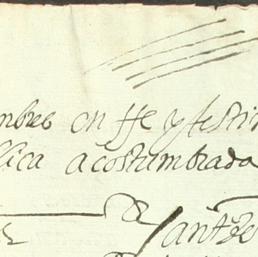 mbre en ffe y testi
lica acostumbrada
Santre